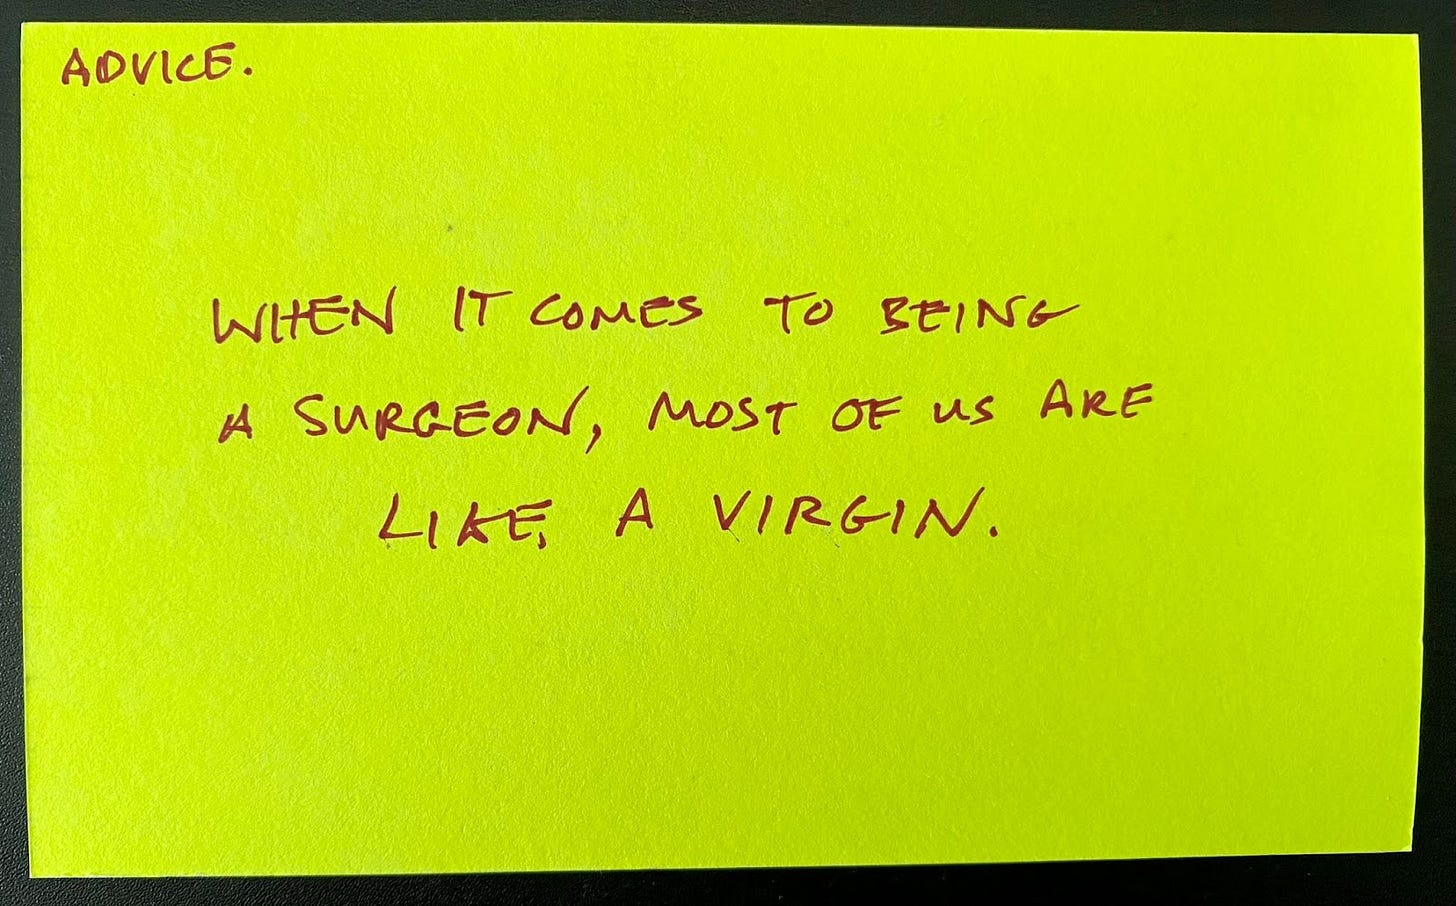 ADVICE.
WHEN IT COMES TO BEING
A SURGEON, MOST OF US ARE
LIKE, A VIRGIN.